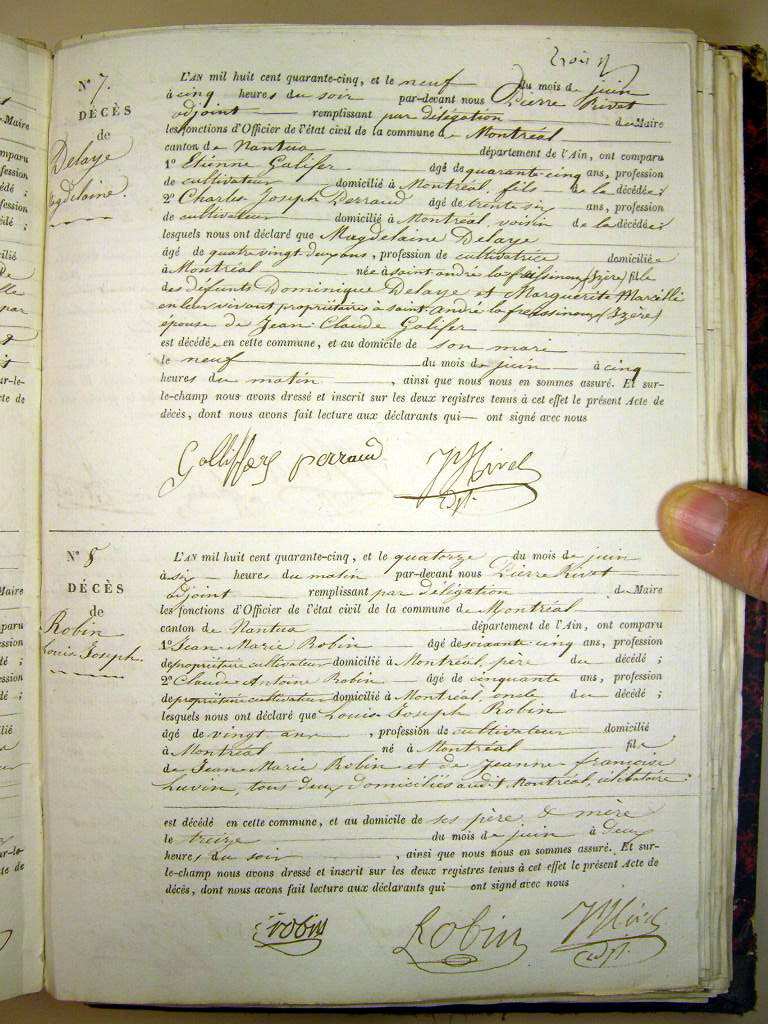 N.º 7.
DÉCÈS
de
Delaye
Magdelaine.
L'AN mil huit cent quarante-cinq, et le neuf du mois de juin
à cinq heures du soir par-devant nous Pierre Rivet
adjoint remplissant par délégation de Maire
les fonctions d'Officier de l'état civil de la commune de Montréal
canton de Nantua département de l'Ain, ont comparu
1º Etienne Galifer âgé de quarante-cinq ans, profession
de cultivateur domicilié à Montréal, fils de la décédée ;
2º Charles Joseph Perraud âgé de trente six ans, profession
de cultivateur domicilié à Montréal, voisin de la décédée ;
lesquels nous ont déclaré que Magdelaine Delaye
âgé de quatre vingt deux ans, profession de cultivatrice domiciliée
à Montréal née à saint andré la (Izère) fille
des défunts Dominique Delaye et Marguerite Marcelli
en leur vivant propriétaires à saint André la (Izère)
épouse de Jean-Claude Galifer
est décédée en cette commune, et au domicile de son mari
le neuf du mois de juin à cinq
heures du matin , ainsi que nous nous en sommes assuré. Et sur-
le-champ nous avons dressé et inscrit sur les deux registres tenus à cet effet le présent Acte de
décès, dont nous avons fait lecture aux déclarants qui — ont signé avec nous
Galliffer perraud PRivet
adjt.
N.º 8
DÉCÈS
de
Robin
Louis Joseph.
L'AN mil huit cent quarante-cinq, et le quatorze du mois de juin
à six heures du matin par-devant nous Pierre Rivet
adjoint remplissant par délégation de Maire
les fonctions d'Officier de l'état civil de la commune de Montréal
canton de Nantua département de l'Ain, ont comparu
1º Jean-Marie Robin âgé de soixante cinq ans, profession
de propriétaire cultivateur domicilié à Montréal, père du décédé ;
2º Claude Antoine Robin âgé de cinquante ans, profession
de propriétaire cultivateur domicilié à Montréal oncle du décédé ;
lesquels nous ont déclaré que Louis Joseph Robin
âgé de vingt ans , profession de cultivateur domicilié
à Montréal né à Montréal fils
de Jean-Marie Robin et de Jeanne françoise
tous deux domiciliés audit Montréal, célibataire ;
est décédé en cette commune, et au domicile de ses père & mère
le treize du mois de juin à deux
heures du soir , ainsi que nous nous en sommes assuré. Et sur-
le-champ nous avons dressé et inscrit sur les deux registres tenus à cet effet le présent Acte de
décès, dont nous avons fait lecture aux déclarants qui — ont signé avec nous
robin Robin PRivet
adjt.